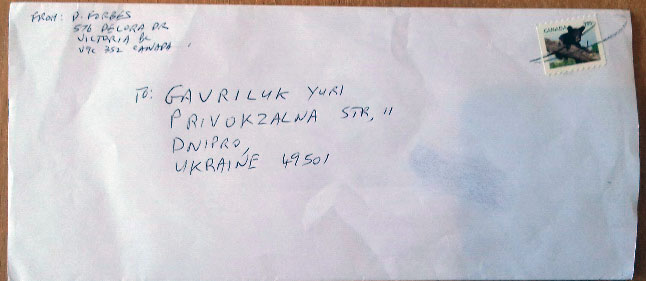 FROM: D. FORBES
576 DELORA DR
VICTORIA BC
V9C 3S2 CANADA
CANADA
TO: GAVRILUK YURI
PRIVOKZALNA STR, 11
DNIPRO,
UKRAINE 49501